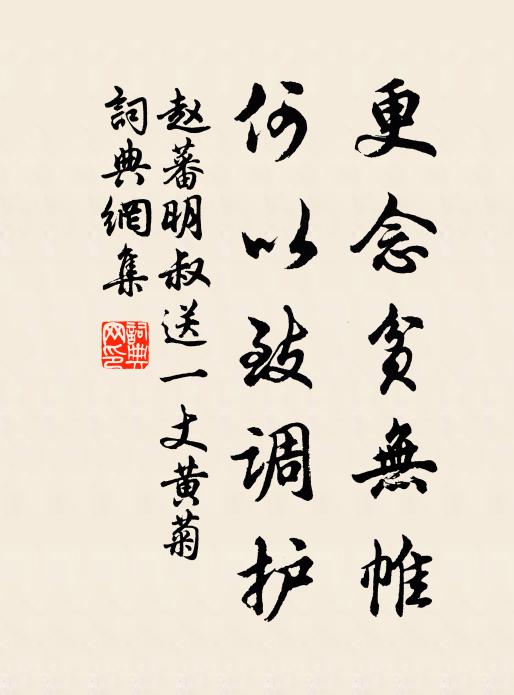 更念贫無帷
何以致调护
赵蕃明叔送一丈黄菊
詞典網集
詞典
网印